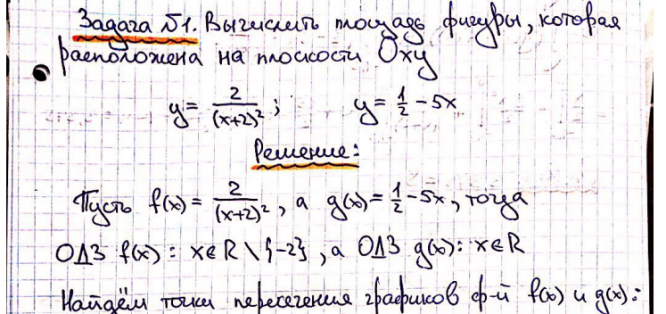 Задача №1. Вычислить площадь фигуры, которая
расположена на плоскости Oxy
y = 2/(x+2)²; y = 1/2 - 5x
Решение:
Пусть f(x) = 2/(x+2)², а g(x) = 1/2 - 5x, тогда
ОДЗ f(x): x∈R \ {-2}, а ОДЗ g(x): x∈R
Найдём точки пересечения графиков ф-й f(x) и g(x):